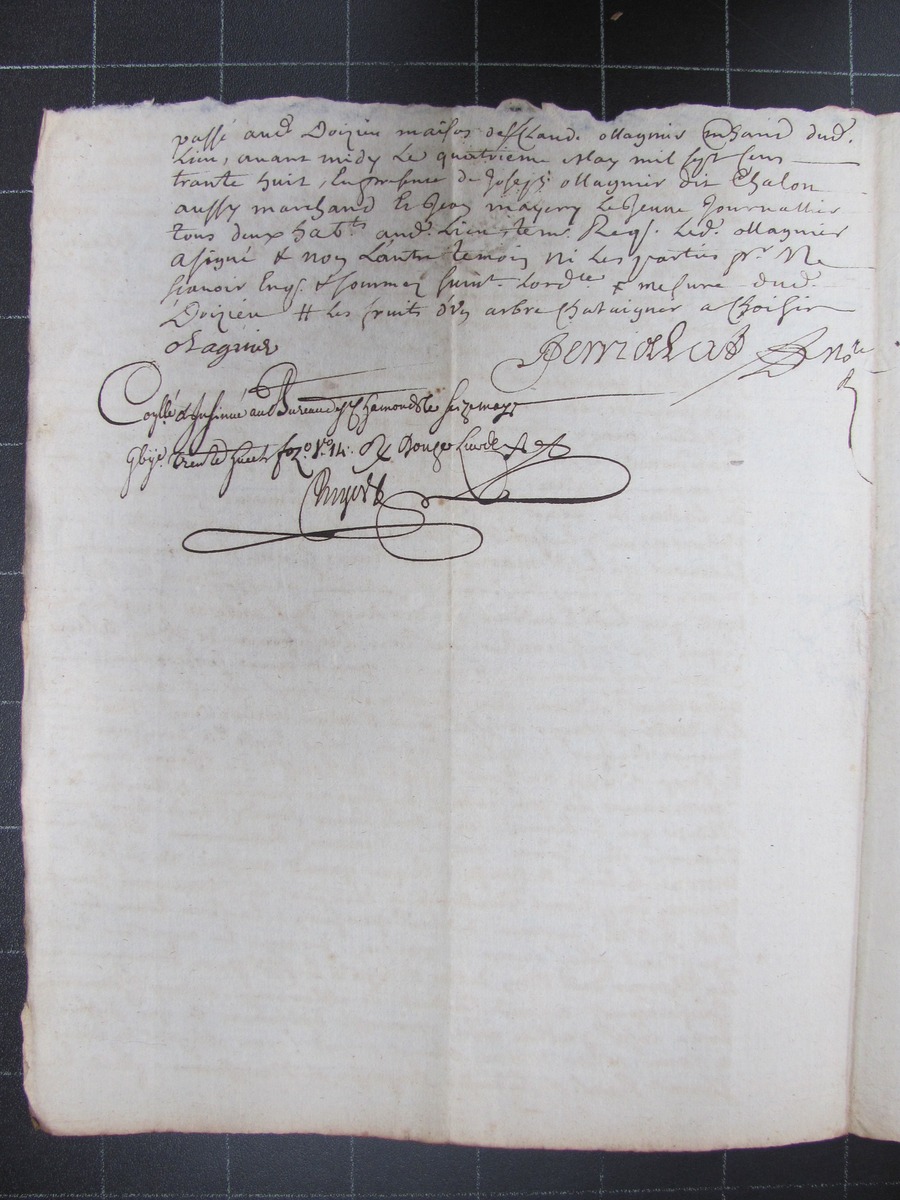 passé aud. Doizieu maison de Claud. ollagnier mchand dud.
Lieu, avant midy Le quatrieme May mil sept Cens
trante huit, En presence de Joseph ollagnier dit Chalon
aussy marchand Et Jean mayery Le Jeune Journallier
tous deux habts. aud. Lieu tem. Reqs. Led. ollagnier
a signé & non L'autre temoin ni Les parties pr. Ne
scavoir Enqs. & sommez suivt. Lordce & mesure dud.
Doizieu # Les fruits d'un arbre Chataignier a Choisir
olagnier
Perriolat nore
Collé. & Insinué au Bureau de St Chamond Le seize may
trente huit fo. Vo. 14. Rx douze Livres